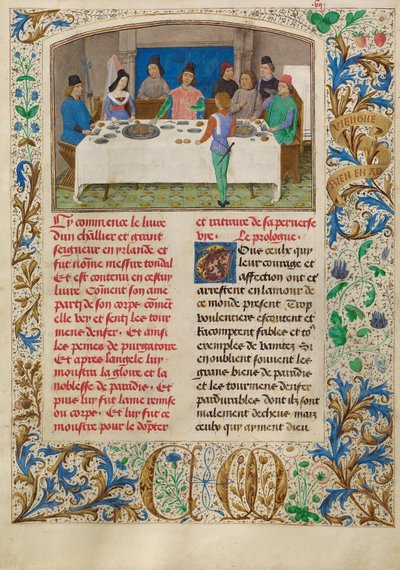 Cy commence le livre
dun chlлier et grant
seigneur en yrlande et
fut nomme messire tondal
Et est contenu en cestuy
livre. Coment son ame
parti de son corps. coment
elle vey et senti les tour
mens denfer. Et aussi
les peines de purgatoire
Et apres langele luy
monstra la gloire et la
noblesse de paradis. Et
puis luy fut lame remise
ou corps. Et luy fut ce
monstre pour le doster
et retraire de sa perverse
vye. Le prologue.
Tous ceulx quy
leur courage et
affection ont et
arrestent en lamour de
ce monde present Trop
voulentiers escoutent et
racomptent fables et
exemples de vanitez. Si
en oublient souvent les
grans biens de paradis
et les tourmens denfer
pardurables dont ilz sont
malement decheus maiz
ceulx quy ayment dieu
VIENGNE
BIEN EN AY
C M